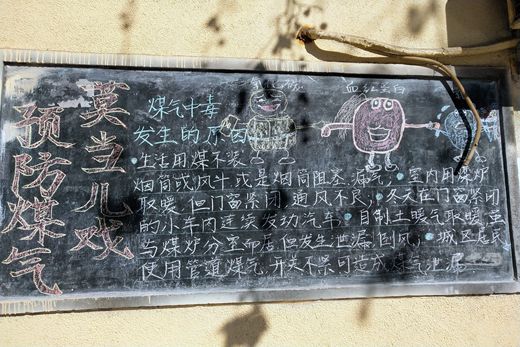 预防煤气
莫当儿戏
血红蛋白
煤气中毒
发生的原因
·生活用煤不装
烟筒或风斗,或是烟筒阻塞、漏气;室内用煤炉
取暖,但门窗紧闭,通风不良;冬天在门窗紧闭
的小车内连续发动汽车。自制土暖气取暖,虽
与煤炉分室而居,但发生泄漏、倒风;城区居民
使用管道煤气,开关不紧可造成煤气泄漏